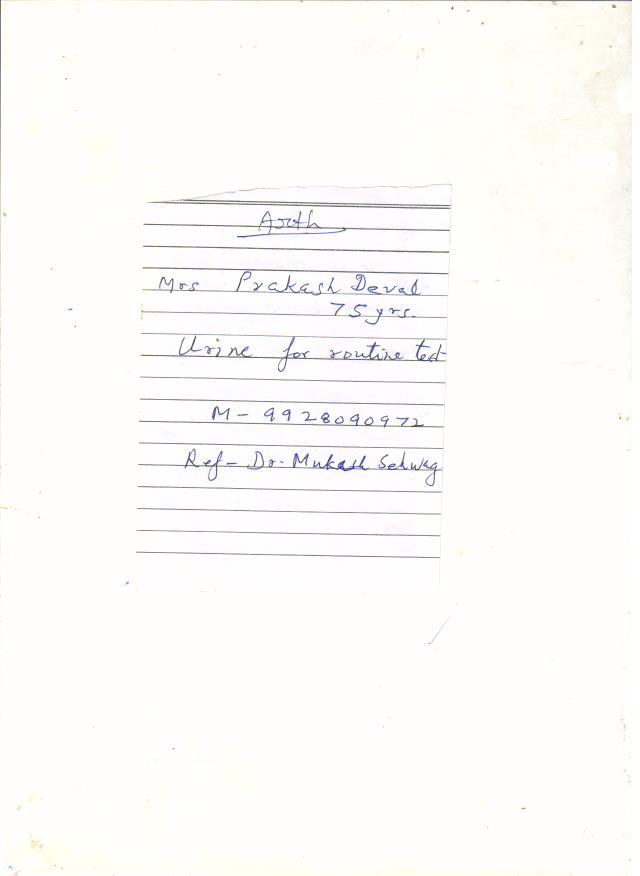 Mrs Prakash Deval
75 yrs.
Urine for routine test
M - 9928090972
Ref - Dr. Mukesh Sehwag